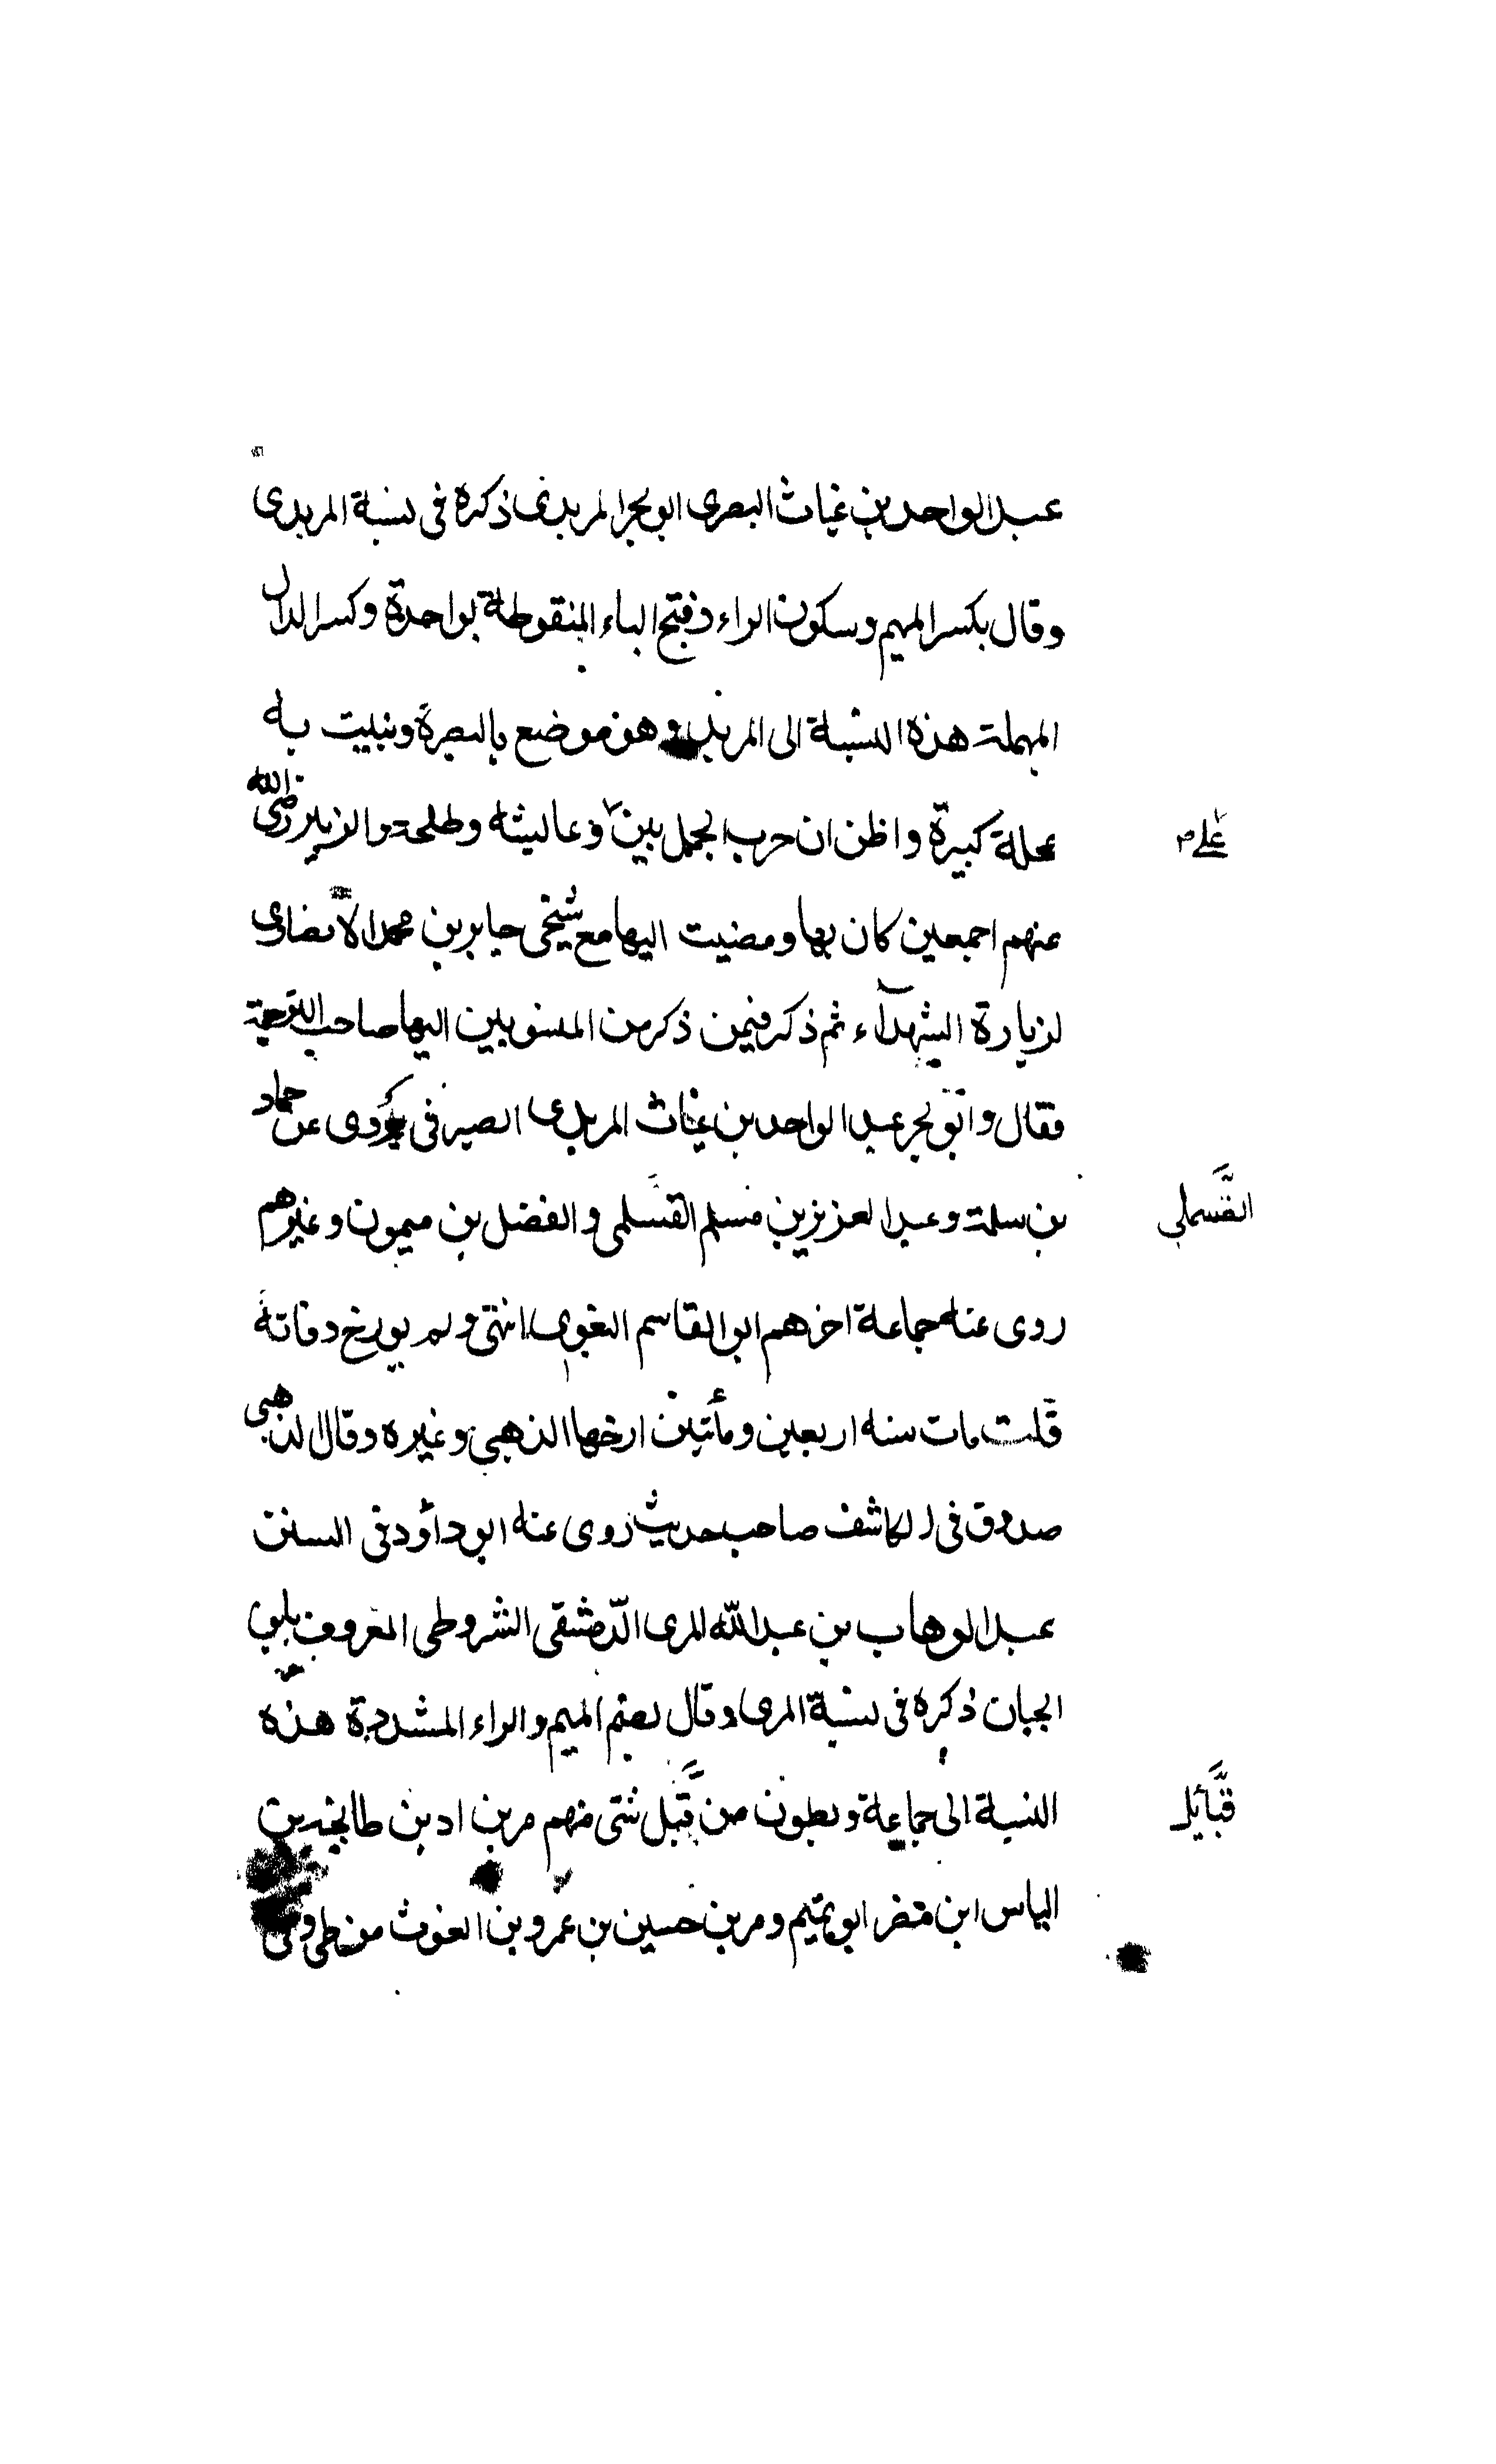 عبد الواحد بن غياث البصرى ابو بحر المربدى ذكره فى نسبة المربدى
وقال بكسر الميم وسكون الراء وفتح الباء المنقوطة بواحدة وكسر الدال
المهملة هذه النسبة الى المربد وهو موضع بالبصرة وبنيت به
محلة كبيرة واظن ان حرب الجمل بين و عائشه وطلحة والزبير رضى الله
على م
عنهم اجمعين كان بها ومضيت اليها مع شيخى جابر بن محمد الانصارى
لزيارة الشهدآء ثم ذكر فيمن ذكر من المنسوبين اليها صاحب الترجمة
فقال وابو بحر عبد الواحد بن غياث المربدى الصيرفى يروى عن حماد
بن سلمة وعبد العزيز بن مسلم القسلمى والفضل بن ميمون وغيرهم
القَّسملي
روى عنه جماعة اخرهم ابو القاسم البغوى انتهى ولم يورخ وفاته
قلت مات سنه اربعين ومأتين ارخها الذهبى وغيره وقال الذهبى
صدوق فى الكاشف صاحب حديث روى عنه ابو داؤد فى السنن
عبد الوهاب بن عبد الله المرى الدّمشقى الشروطى المعروف بابن
الجبان ذكره فى نسبة المرى وقال بضم الميم والراء المشددة هذه
النسبة الى جماعة وبطون من قبل شتى منهم مر بن اد بن طابخة بن
قبَّائل
الياس ابن مضر ابو تميم ومر بن حسين بن عمرو بن الغوث من طى وفى